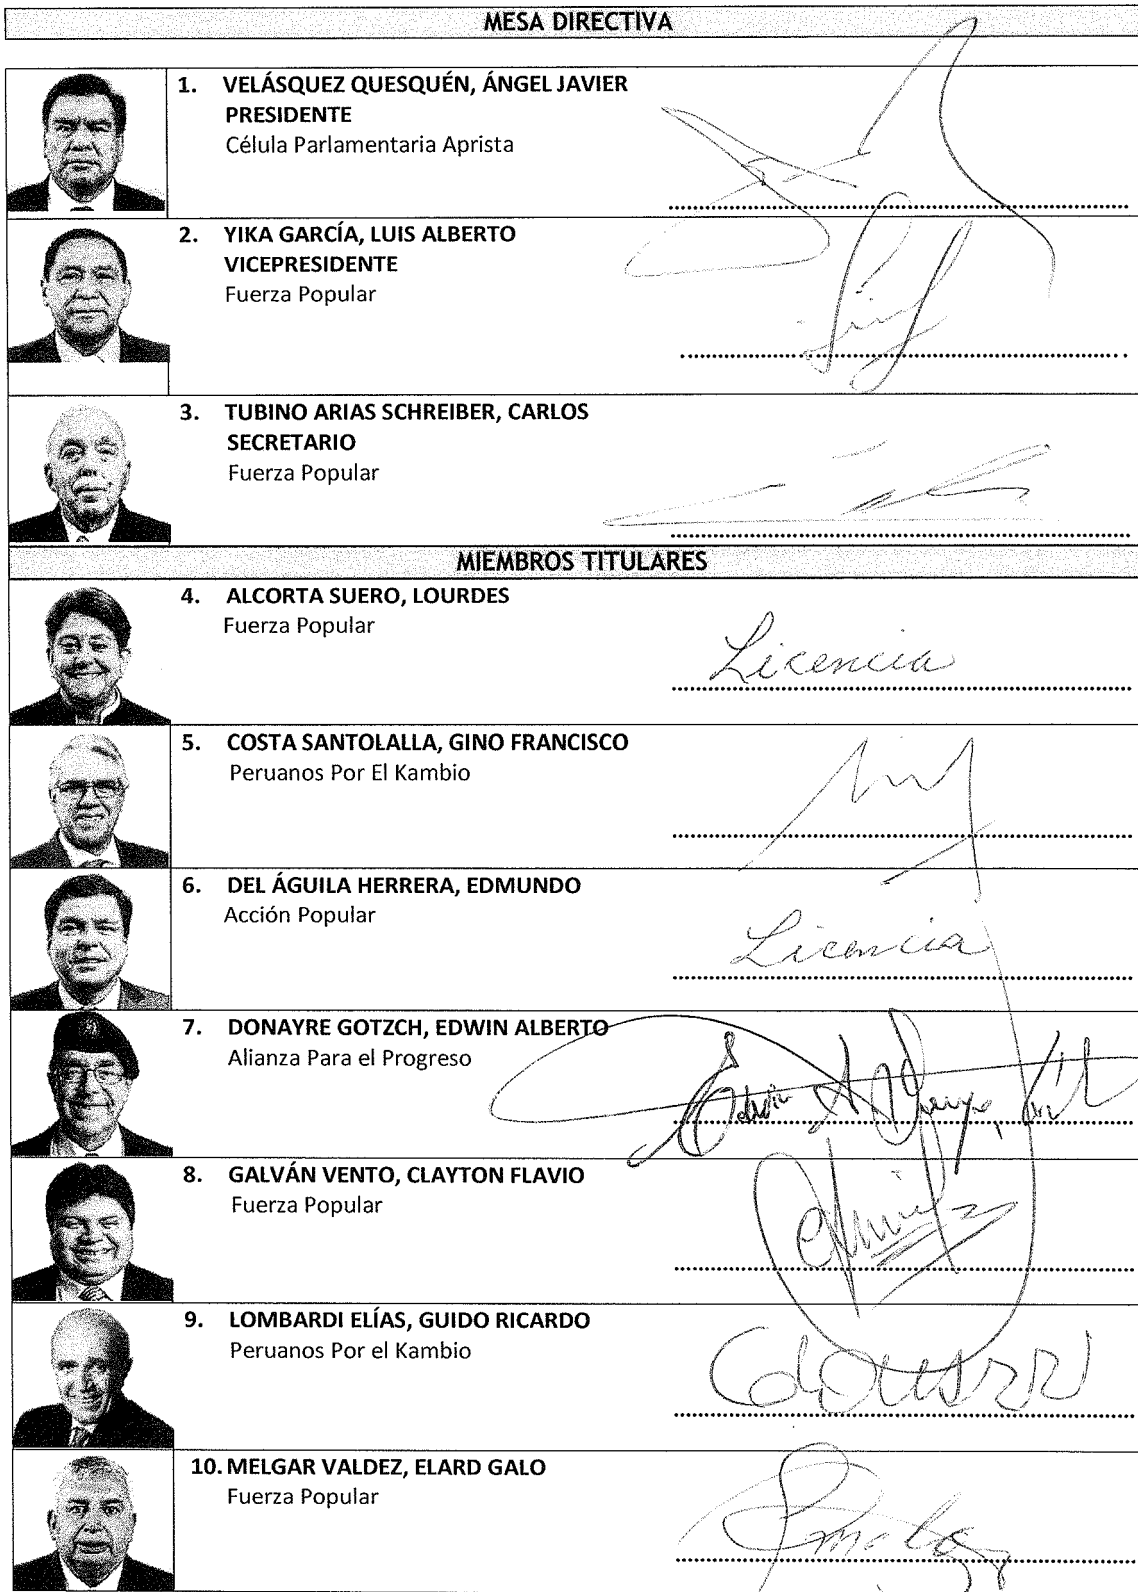 MESA DIRECTIVA
1. VELÁSQUEZ QUESQUÉN, ÁNGEL JAVIER
PRESIDENTE
Célula Parlamentaria Aprista
2. YIKA GARCÍA, LUIS ALBERTO
VICEPRESIDENTE
Fuerza Popular
3. TUBINO ARIAS SCHREIBER, CARLOS
SECRETARIO
Fuerza Popular
MIEMBROS TITULARES
4. ALCORTA SUERO, LOURDES
Fuerza Popular
Licencia
5. COSTA SANTOLALLA, GINO FRANCISCO
Peruanos Por El Kambio
6. DEL ÁGUILA HERRERA, EDMUNDO
Acción Popular
Licencia
7. DONAYRE GOTZCH, EDWIN ALBERTO
Alianza Para el Progreso
Edwin A
8. GALVÁN VENTO, CLAYTON FLAVIO
Fuerza Popular
9. LOMBARDI ELÍAS, GUIDO RICARDO
Peruanos Por el Kambio
10. MELGAR VALDEZ, ELARD GALO
Fuerza Popular